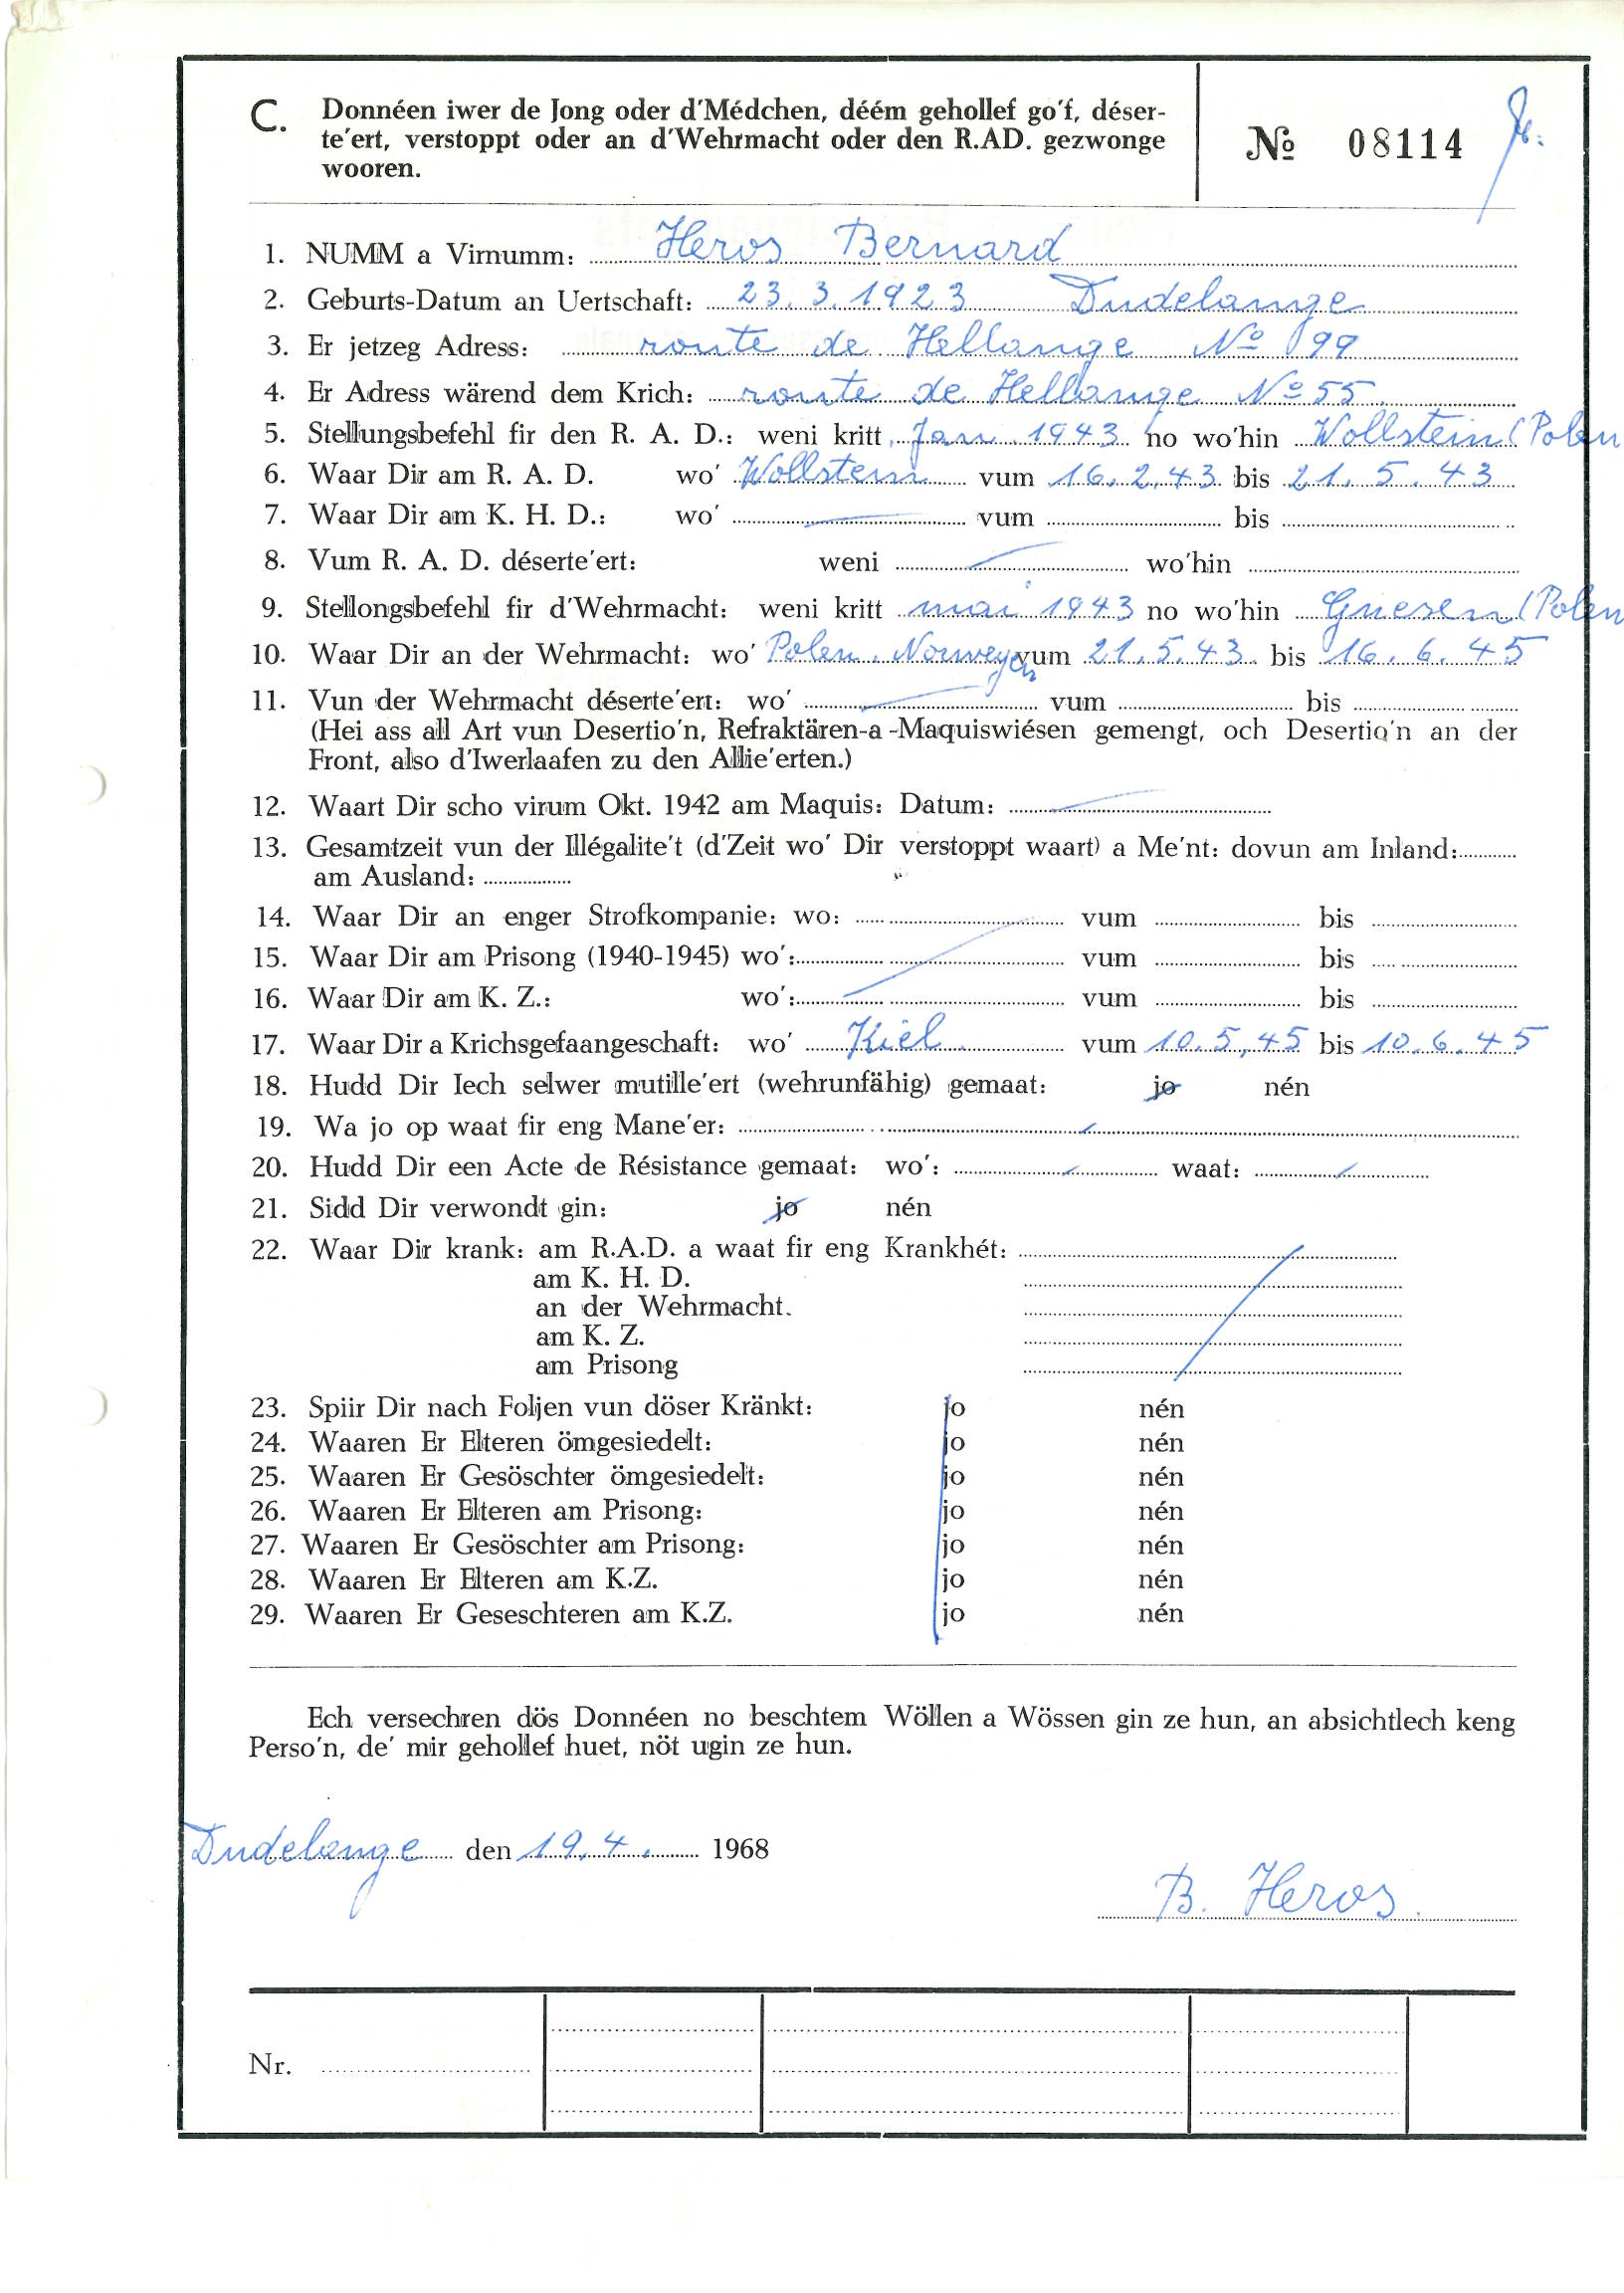 C. Donnéen iwer de Jong oder d'Médchen, déém gehollef go'f, déser-
te'ert, verstoppt oder an d'Wehrmacht oder den R.AD. gezwonge
wooren.
№ 08114
1. NUMM a Virnumm: Heros Bernard
2. Geburts-Datum an Uertschaft: 23.3.1923 Dudelange
3. Er jetzeg Adress: route de Hellange No 99
4. Er Adress wärend dem Krich: route de Hellange No 55
5. Stellungsbefehl fir den R. A. D.: weni kritt Jan 1943 no wo'hin Wollstein (Polen
6. Waar Dir am R. A. D. wo' Wollstein vum 16.2.43 bis 21.5.43
7. Waar Dir am K. H. D.: wo' vum bis
8. Vum R. A. D. déserte'ert: weni wo'hin
9. Stellongsbefehl fir d'Wehrmacht: weni kritt mai 1943 no wo'hin Gnesen (Polen
10. Waar Dir an der Wehrmacht: wo' Polen. Norwegen vum 21.5.43. bis 16.6.45
11. Vun der Wehrmacht déserte'ert: wo' vum bis
(Hei ass all Art vun Desertio'n, Refraktären-a -Maquiswiésen gemengt, och Desertio'n an der
Front, also d'Iwerlaafen zu den Allie'erten.)
12. Waart Dir scho virum Okt. 1942 am Maquis: Datum:
13. Gesamtzeit vun der Illégalite't (d'Zeit wo' Dir verstoppt waart) a Me'nt: dovun am Inland:
am Ausland:
14. Waar Dir an enger Strofkompanie: wo: vum bis
15. Waar Dir am Prisong (1940-1945) wo': vum bis
16. Waar Dir am K. Z.: wo': vum bis
17. Waar Dir a Krichsgefaangeschaft: wo' Kiel. vum 10.5.45 bis 10.6.45
18. Hudd Dir Iech selwer mutille'ert (wehrunfähig) gemaat: jo nén
19. Wa jo op waat fir eng Mane'er:
20. Hudd Dir een Acte de Résistance gemaat: wo': waat:
21. Sidd Dir verwondt gin: jo nén
22. Waar Dir krank: am R.A.D. a waat fir eng Krankhét:
am K. H. D.
an der Wehrmacht.
am K. Z.
am Prisong
23. Spiir Dir nach Foljen vun döser Kränkt: jo nén
24. Waaren Er Elteren ömgesiedelt: jo nén
25. Waaren Er Gesöschter ömgesiedelt: jo nén
26. Waaren Er Elteren am Prisong: jo nén
27. Waaren Er Gesöschter am Prisong: jo nén
28. Waaren Er Elteren am K.Z. jo nén
29. Waaren Er Geseschteren am K.Z. jo nén
Ech versechren dös Donnéen no beschtem Wöllen a Wössen gin ze hun, an absichtlech keng
Perso'n, de' mir gehollef huet, nöt ugin ze hun.
Dudelange den 19.4. 1968
B. Heros.
Nr.